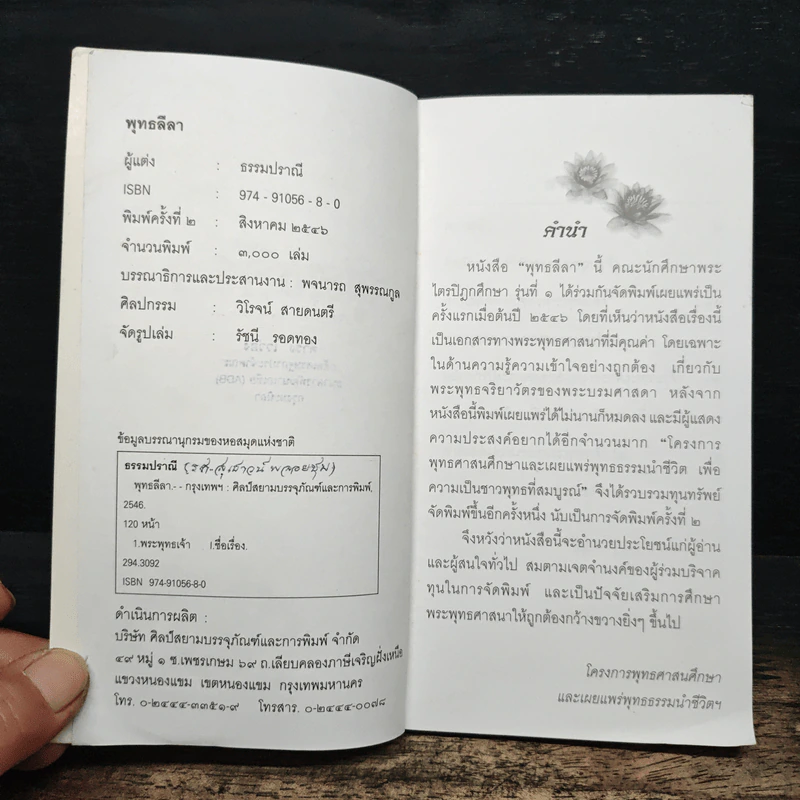 พุทธลีลา
ผู้แต่ง : ธรรมปราณี
ISBN : 974 - 91056 - 8 - 0
พิมพ์ครั้งที่ ๒ : สิงหาคม ๒๕๔๖
จำนวนพิมพ์ : ๓,๐๐๐ เล่ม
บรรณาธิการและประสานงาน : พจนารถ สุพรรณกูล
ศิลปกรรม : วิโรจน์ สายดนตรี
จัดรูปเล่ม : รัชนี รอดทอง
ข้อมูลบรรณานุกรมของหอสมุดแห่งชาติ
ธรรมปราณี (รศ.สุเสาวน์ พลอยชุม)
พุทธลีลา.- - กรุงเทพฯ : ศิลป์สยามบรรจุภัณฑ์และการพิมพ์,
2546.
120 หน้า
1.พระพุทธเจ้า I.ชื่อเรื่อง.
294.3092
ISBN 974-91056-8-0
ดำเนินการผลิต :
บริษัท ศิลป์สยามบรรจุภัณฑ์และการพิมพ์ จำกัด
๔๙ หมู่ ๑ ซ.เพชรเกษม ๖๙ ถ.เลียบคลองภาษีเจริญฝั่งเหนือ
แขวงหนองแขม เขตหนองแขม กรุงเทพมหานคร
โทร. ๐-๒๔๔๔-๓๓๕๑-๙ โทรสาร. ๐-๒๔๔๔-๐๐๗๘
คำนำ
หนังสือ “พุทธลีลา” นี้ คณะนักศึกษาพระ
ไตรปิฎกศึกษา รุ่นที่ ๑ ได้ร่วมกันจัดพิมพ์เผยแพร่เป็น
ครั้งแรกเมื่อต้นปี ๒๕๔๖ โดยที่เห็นว่าหนังสือเรื่องนี้
เป็นเอกสารทางพระพุทธศาสนาที่มีคุณค่า โดยเฉพาะ
ในด้านความรู้ความเข้าใจอย่างถูกต้อง เกี่ยวกับ
พระพุทธจริยาวัตรของพระบรมศาสดา หลังจาก
หนังสือนี้พิมพ์เผยแพร่ได้ไม่นานก็หมดลง และมีผู้แสดง
ความประสงค์อยากได้อีกจำนวนมาก “โครงการ
พุทธศาสนศึกษาและเผยแพร่พุทธธรรมนำชีวิต เพื่อ
ความเป็นชาวพุทธที่สมบูรณ์” จึงได้รวบรวมทุนทรัพย์
จัดพิมพ์ขึ้นอีกครั้งหนึ่ง นับเป็นการจัดพิมพ์ครั้งที่ ๒
จึงหวังว่าหนังสือนี้จะอำนวยประโยชน์แก่ผู้อ่าน
และผู้สนใจทั่วไป สมตามเจตจำนงค์ของผู้ร่วมบริจาค
ทุนในการจัดพิมพ์ และเป็นปัจจัยเสริมการศึกษา
พระพุทธศาสนาให้ถูกต้องกว้างขวางยิ่งๆ ขึ้นไป
โครงการพุทธศาสนศึกษา
และเผยแพร่พุทธธรรมนำชีวิตฯ